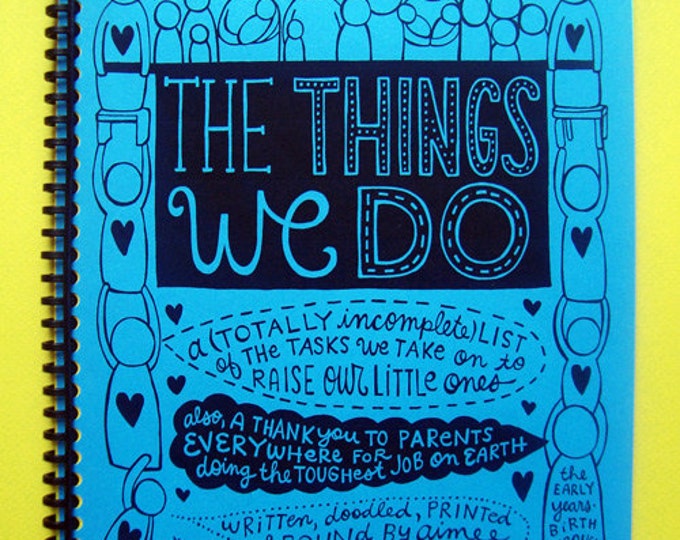 THE THINGS
We DO
a (TOTALLY incomplete) LIST
of THE TASKS we TAKE on to
RAISE OUR LITTLE ones
also, A THANK YOU TO PARENTS
EVERYWHERE FOR
doing the TOUGHEST JOB ON EARTH
WRITTEN, doodled, PRINTED
BOUND BY aimee
the
EARLY
years-
BIRTH